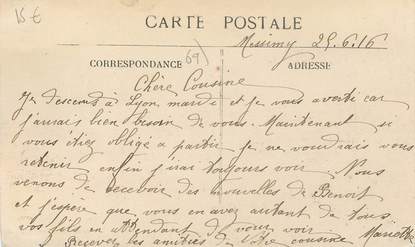 15 €
CARTE POSTALE
Messimy 25.6.16
CORRESPONDANCE
69)
ADRESSE
Chère Cousine
Je descend à Lyon mardi et je vous averti car
j'aurais bien besoin de vous. Maintenant si
vous étiez obligé a partir je ne voudrais vous
retenir enfin j'irai toujours voir. Nous
venons de recevoir des nouvelles de Benoit
et j'espère que vous en avez autant de tous
vos fils en attendant de vous voir
Recevez les amitiés de votre cousine Mariette